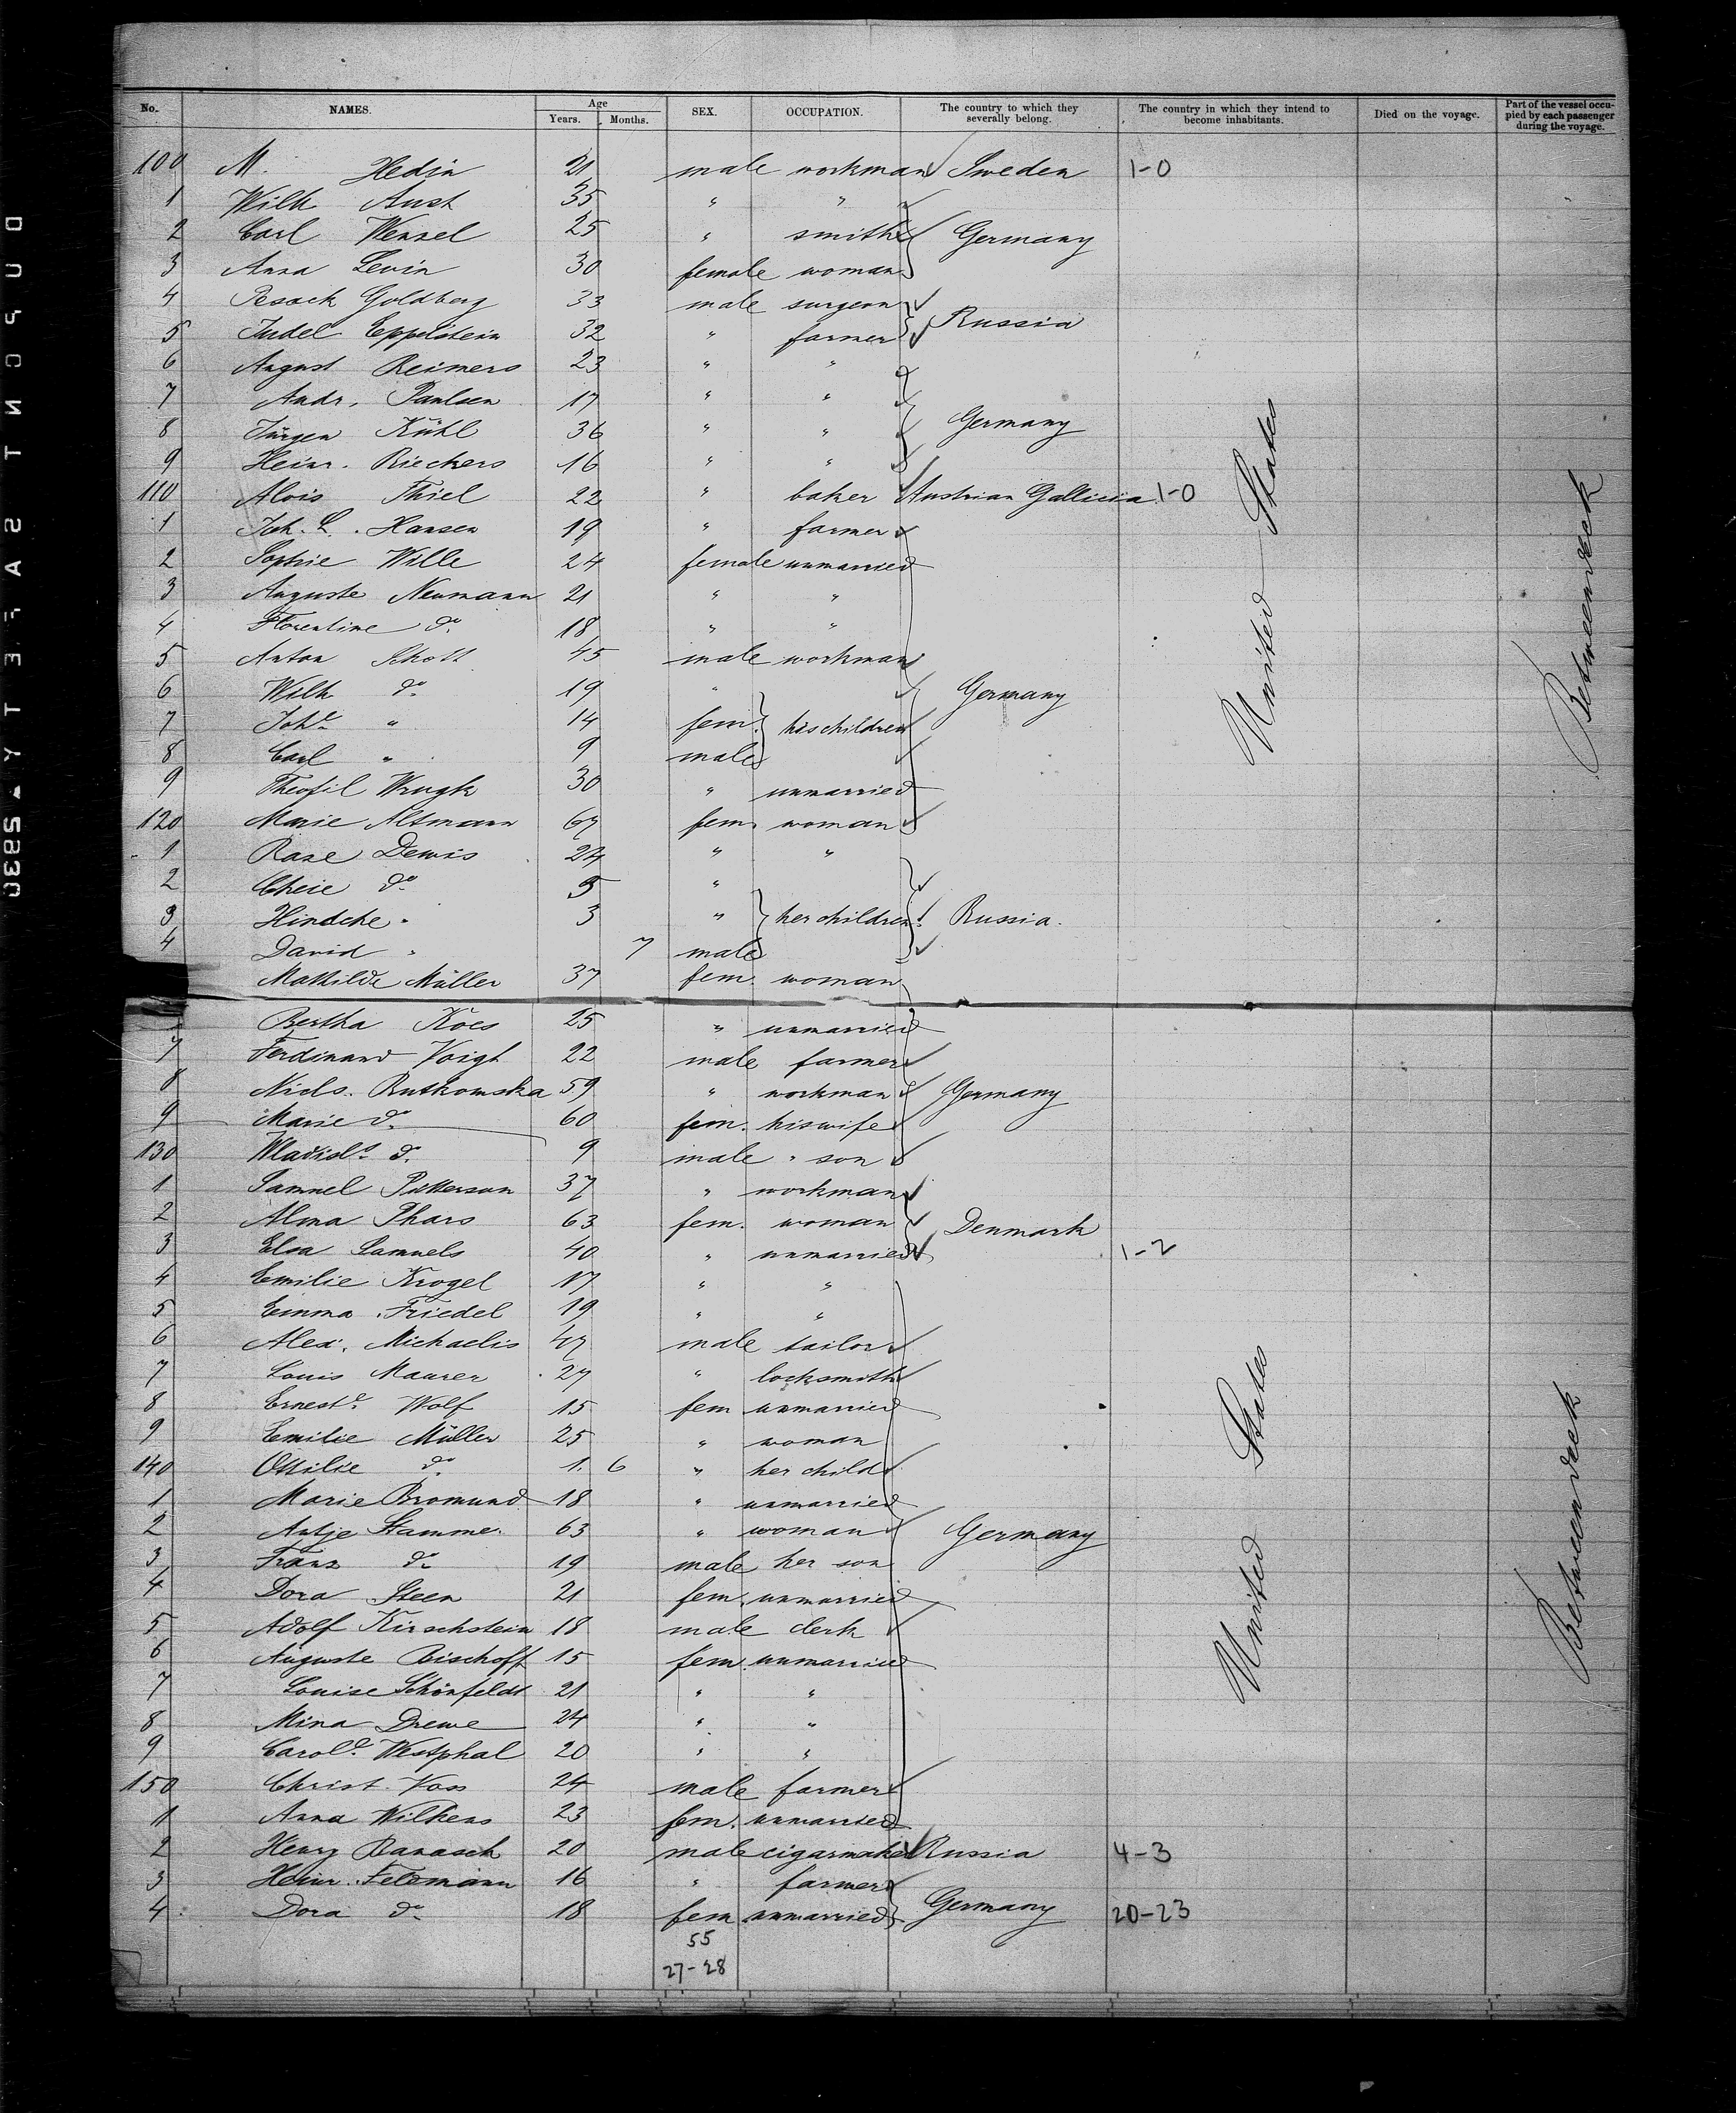 No. NAMES. Age Years. Months. SEX. OCCUPATION. The country to which they severally belong. The country in which they intend to become inhabitants. Died on the voyage. Part of the vessel occupied by each passenger during the voyage.
100 M. Hedin 21 male workman Sweden 1-0
1 Wilh Aust 35 " "
2 Carl Wensel 25 " smith Germany
3 Anna Levin 30 female woman
4 Pesach Goldberg 33 male surgeon
5 Judel Eppelstein 32 " farmer Russia
6 August Reimers 23 " "
7 Andr. Paulsen 17 " "
8 Jürgen Kühl 36 " " Germany
9 Heinr. Rieckers 16 " "
110 Alois Thiel 22 " baker Austrian Gallicia 1-0
1 Joh. L. Hansen 19 " farmer
2 Sophie Wille 24 female unmarried
3 Auguste Neumann 21 " "
4 Florentine do 18 " "
5 Anton Schott 45 male workman
6 Wilh do 19 " Germany
7 Johe " 14 fem. his children
8 Carl " 9 male
9 Theofil Wrugk 30 " unmarried
120 Marie Altmann 67 fem. woman
1 Rase Dewis 24 " "
2 Cheie do 5 "
3 Hindche " 3 " her children Russia.
4 David " 7 male
Mathilde Müller 37 fem. woman
Bertha Koes 25 " unmarried
7 Ferdinand Voigt 22 male farmer
8 Nicls. Rutkowska 59 " workman Germany
9 Marie do 60 fem. his wife
130 Wladisls do 9 male " son
1 Samuel Petterson 37 " workman
2 Alma Thars 63 fem. woman Denmark
3 Elsa Samuels 40 " unmarried 1-2
4 Emilie Krogel 17 " "
5 Emma Friedel 19 " "
6 Alex. Michaelis 47 male tailor
7 Louis Maurer 27 " locksmith
8 Erneste Wolf 15 fem unmarried
9 Emilie Müller 25 " woman
140 Ottilie do 1. 6 " her child
1 Marie Bromund 18 " unmarried
2 Antje Stamme. 63 " woman Germany
3 Franz do 19 male her son
4 Dora Steen 21 fem. unmarried
5 Adolf Kirschstein 18 male clerk
6 Auguste Bischoff 15 fem. unmarried
7 Louise Schönfeldt 21 " "
8 Mina Drewe 24 " "
9 Carole Westphal 20 " "
150 Christ. Voss 24 male farmer
1 Anna Wilkens 23 fem. unmarried
2 Henry Banasch 20 male cigarmaker Russia 4-3
3 Heinr. Felsmann 16 " farmer
4 Dora do 18 fem unmarried Germany 20-23
55
27-28
United States
Betweendeck
United States
Betweendeck